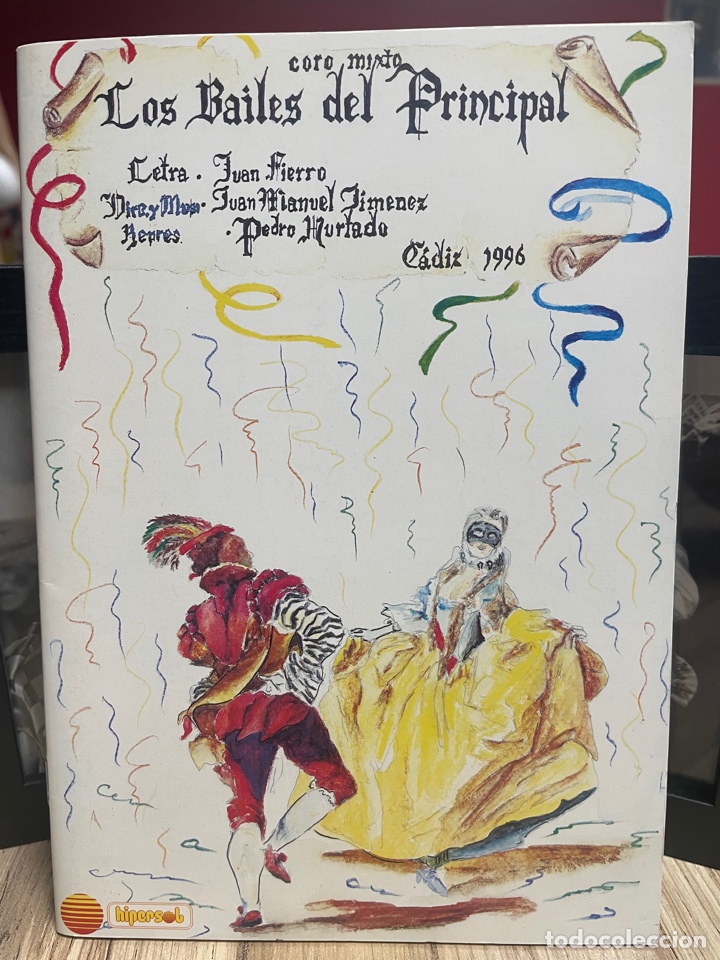 coro mixto
Los Bailes del Principal
Letra. Juan Fierro
Dire y Mus. Juan Manuel Jimenez
Repres. Pedro Hurtado
Cádiz 1996
hipersol
todocoleccion